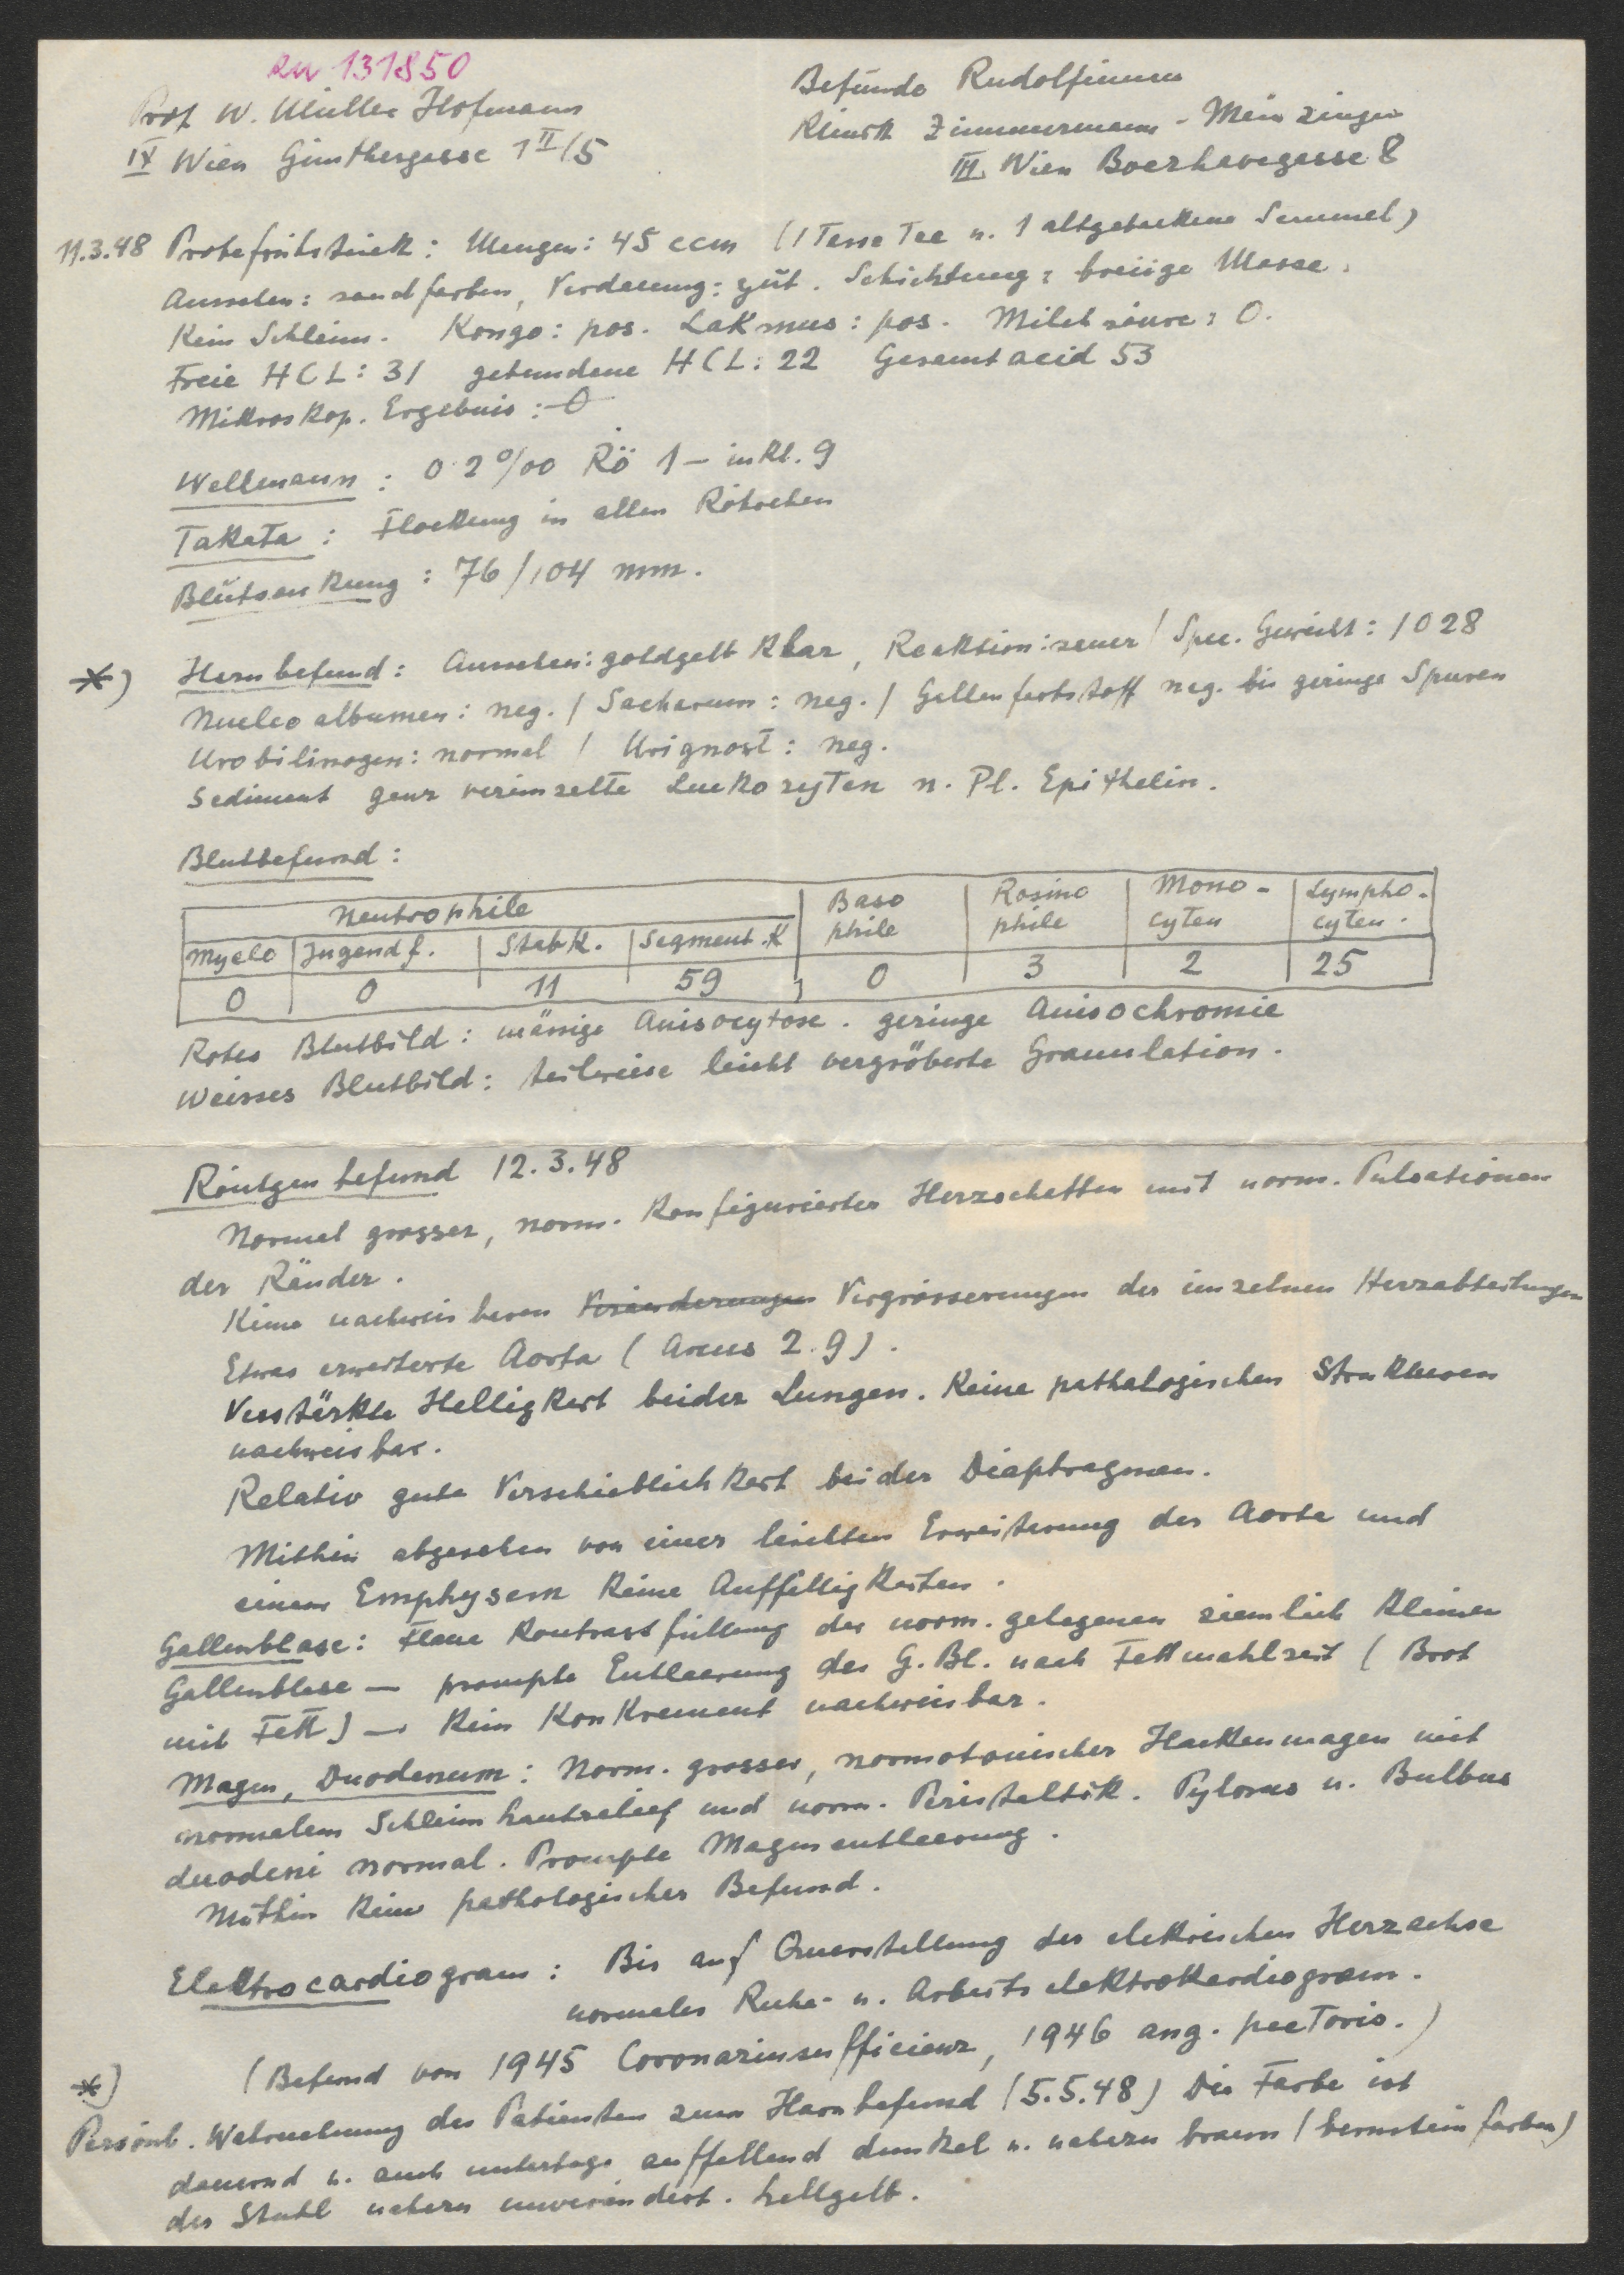 ZN 131850
Prof W. Müller Hofmann
IX Wien Günthergasse 1 II/5
Befunde Rudolfinum
Klinik Zimmermann - Meinzingen
III. Wien Boerhavegasse 8
11.3.48 Probefrühstück: Mengen: 45 ccm (1 Tasse Tee u. 1 altgebackene Semmel)
Aussehen: sandfarben, Verdauung: gut. Schichtung: breiige Masse.
Kein Schleim. Kongo: pos. Lakmus: pos. Milchsäure: 0.
Freie HCL: 31 gebundene HCL: 22 Gesamtacid 53
Mikroskop. Ergebnis: 0
Wellmann: 0.2 º/oo Rö 1 – inkl. 9
Takata: Flockung in allen Röhrchen
Blutsenkung: 76/104 mm.
*) Harnbefund: Aussehen: goldgelb klar, Reaktion: sauer / Spec. Gewicht: 1028
Nucleoalbumen: neg. / Sacharum: neg. / Gallenfarbstoff neg. bis geringe Spuren
Urobilinogen: normal / Urignost: neg.
Sediment ganz vereinzelte Leukozyten u. Pl. Epithelin.
Blutbefund:
Neutrophile
Baso phile
Eosino phile
Mono- cyten
Lympho- cyten.
Myelo Jugendf. Stabk. Segment.K
0 0 11 59 0 3 2 25
Rotes Blutbild: mässige Anisocytose. geringe Anisochromie
Weisses Blutbild: teilweise leicht vergröberte Granulation.
Röntgenbefund 12.3.48
Normal grosser, norm. konfigurierter Herzschatten mit norm. Pulsationen
der Ränder.
Keine nachweisbaren Veränderungen Vergrösserungen der einzelnen Herzabteilungen
Etwas erweiterte Aorta (Arcus 2.9).
Verstärkte Helligkeit beider Lungen. Keine pathalogischen Strukturen
nachweisbar.
Relativ gute Verschieblichkeit beider Diaphragmen.
Mithin abgesehen von einer leichten Erweiterung der Aorta und
einem Emphysem keine Auffälligkeiten.
Gallenblase: Flaue Kontrastfüllung der norm. gelegenen ziemlich kleinen
Gallenblase — prompte Entleerung der G.Bl. nach Fettmahlzeit (Brot
mit Fett) — kein Konkrement nachweisbar.
Magen, Duodenum: Norm. grosser, normotonischer Hackenmagen mit
normalem Schleimhautrelief und norm. Peristaltik. Pylorus u. Bulbus
duodeni normal. Prompte Magenentleerung.
Mithin kein pathologischer Befund.
Elektrocardiogram: Bis auf Querstellung der elektrischen Herzachse
normales Ruhe- u. Arbeitselektrokardiogram.
(Befund von 1945 Coronarinsufficienz, 1946 ang. pectoris.)
*)
Persönl. Wahrnehmung des Patienten zum Harnbefund (5.5.48) Die Farbe ist
dauernd u. auch untertags auffallend dunkel u. nahezu braun (bernsteinfarben)
der Stuhl nahezu unverändert. hellgelb.